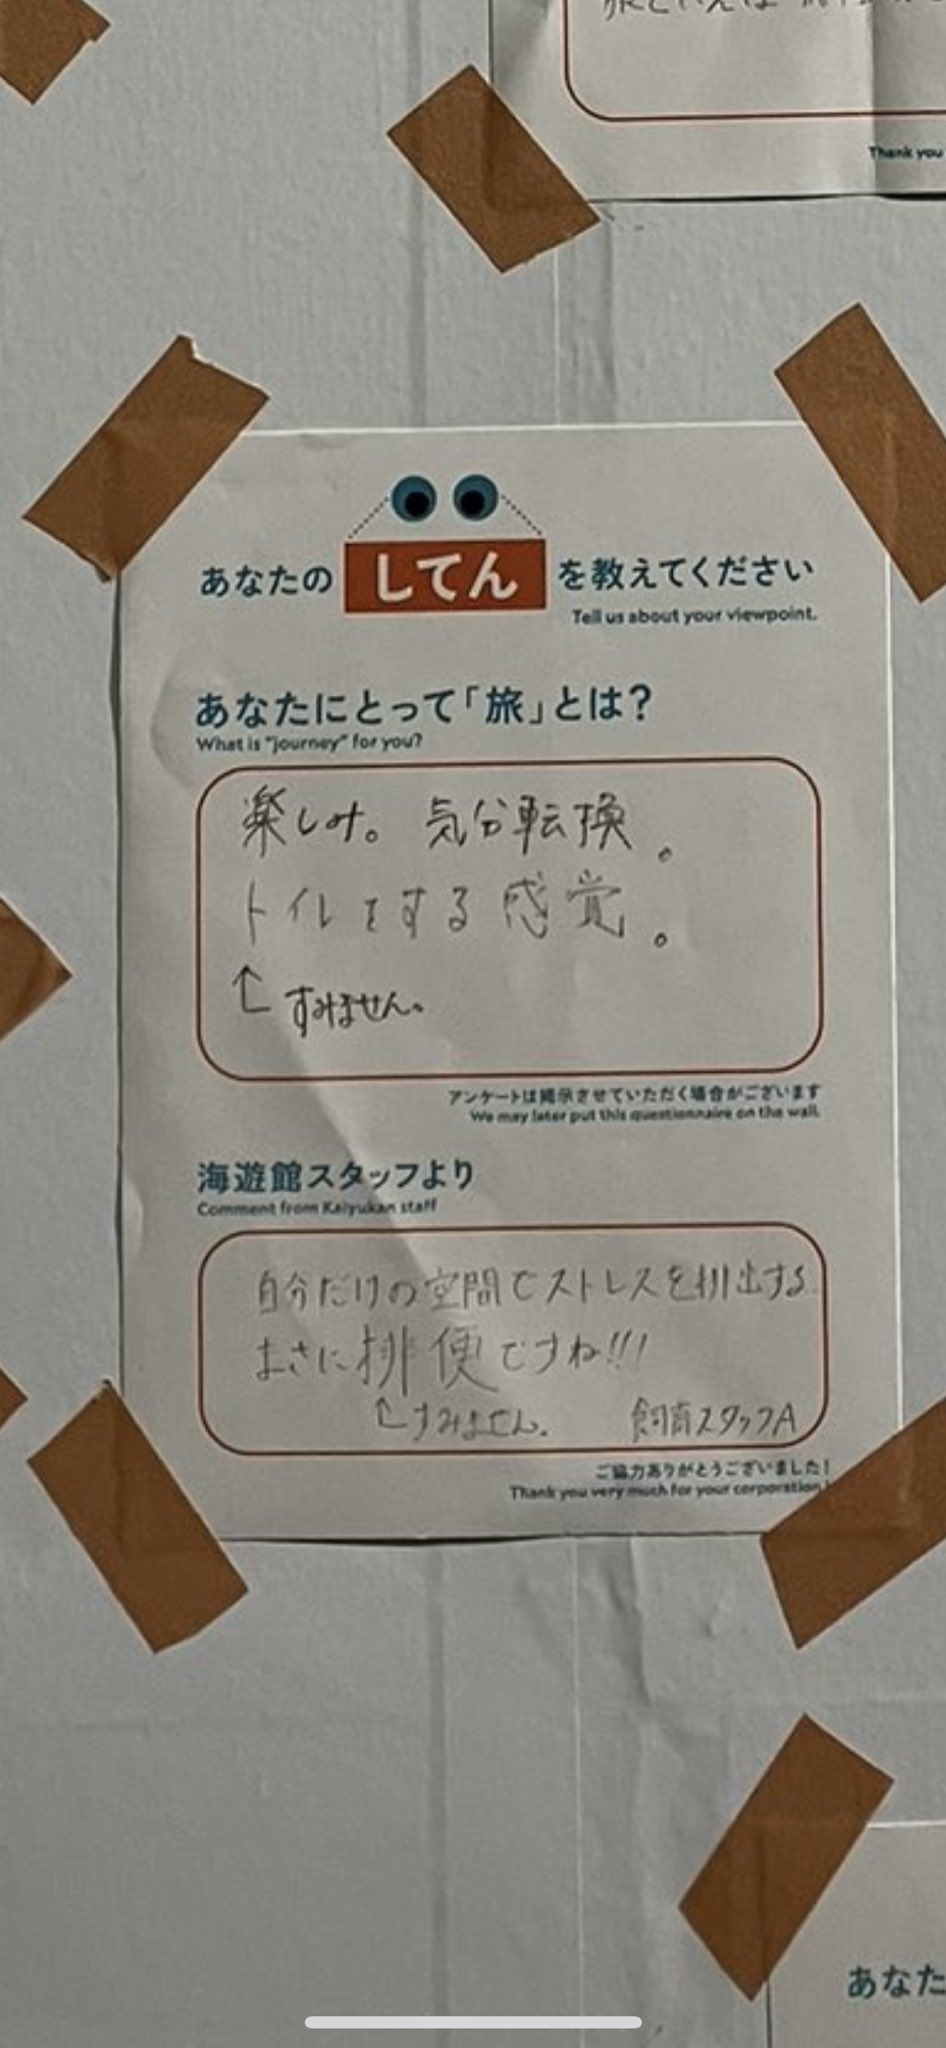 Thank you
あなたの してん を教えてください
Tell us about your viewpoint.
あなたにとって「旅」とは？
What is "journey" for you?
楽しみ。気分転換。
トイレをする感覚。
↑ すみません。
アンケートは掲示させていただく場合がございます
We may later put this questionnaire on the wall.
海遊館スタッフより
Comment from Kaiyukan staff
自分だけの空間でストレスを排出する
まさに排便ですね!!!
↑すみません。 飼育スタッフA
ご協力ありがとうございました！
Thank you very much for your corporation!
あなた